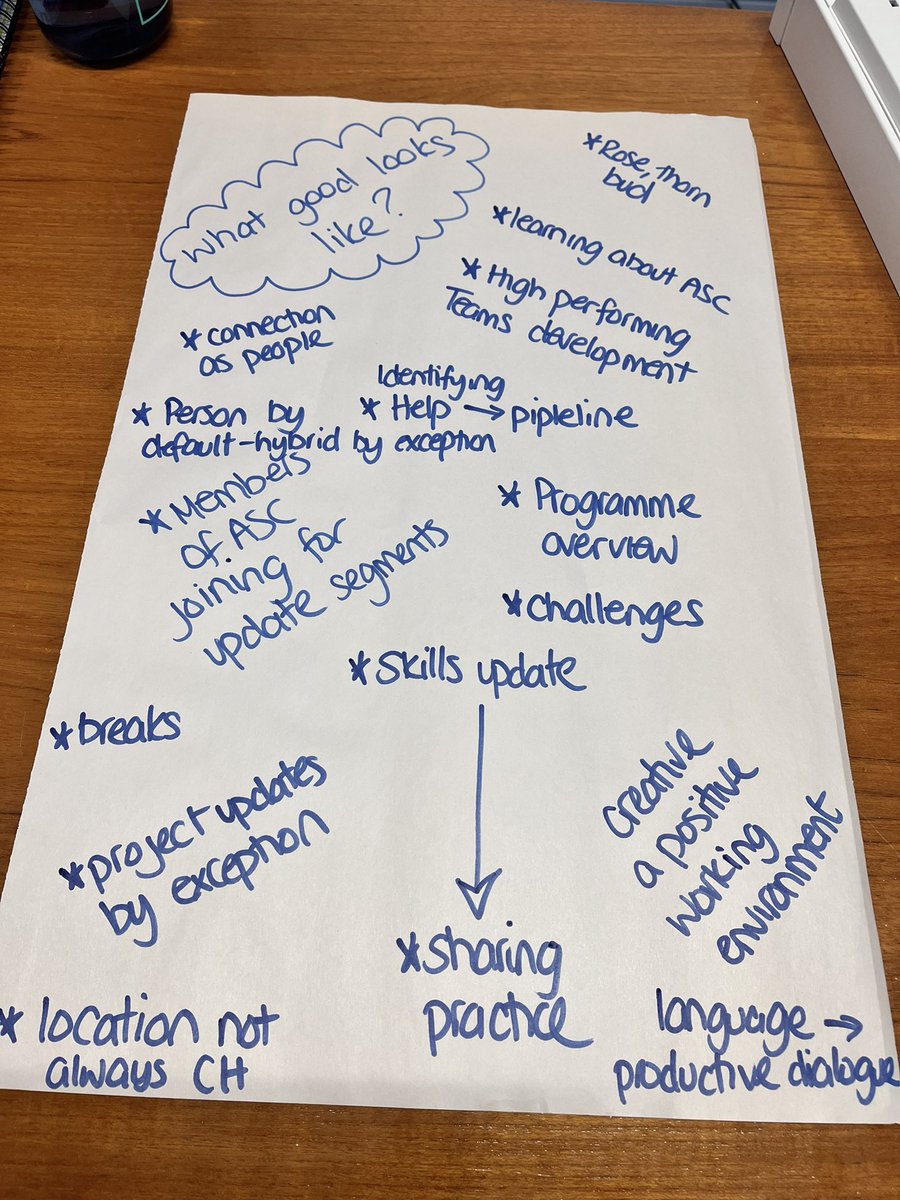 What good looks
like?
*Rose, thorn
bud
*learning about ASC
*High performing
Teams development
*connection
as people
Identifying
*Help → pipleline
*Person by
default-hybrid by exception
*Members
of. ASC
joining for
update segments
*Programme
overview
*challenges
*Skills update
*breaks
*project updates
by exception
Creative
a positive
working
environment
*sharing
practice
*location not
always CH
language →
productive dialogue